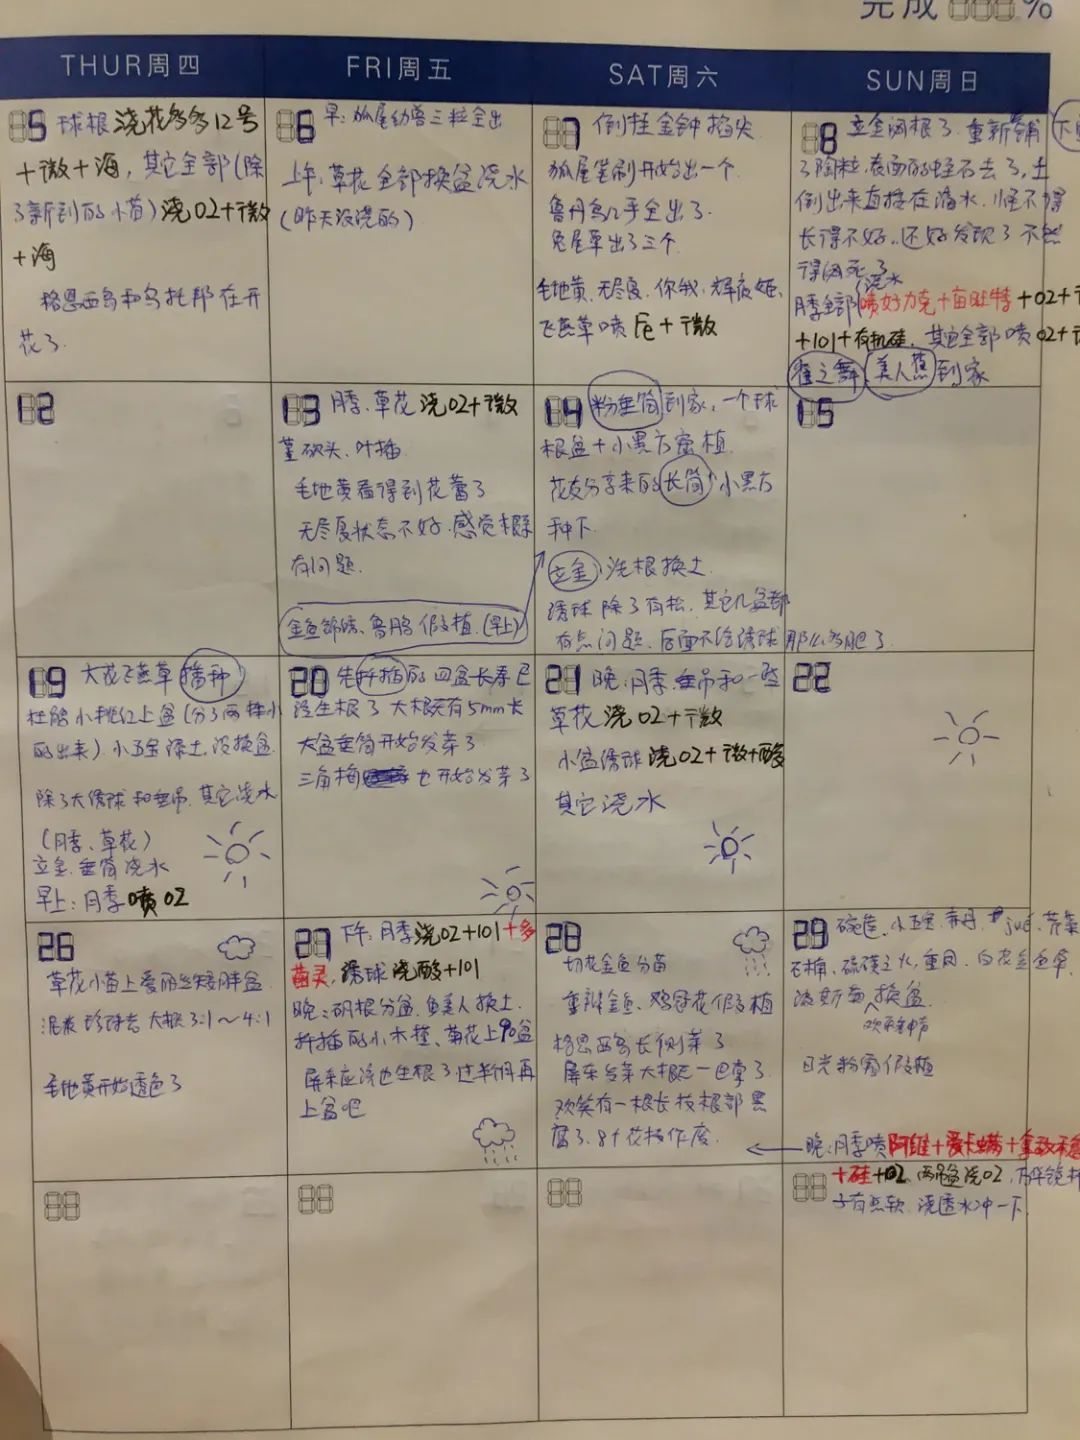 完成 %
THUR周四 FRI周五 SAT周六 SUN周日
5 球根浇花多多12号
+微+海，其它全部(除
了新到的小苗)浇02+微
+海
格恩西岛和乌托邦在开
花了
6 早:狐尾幼兽三粒全出
上午:草花全部换盆浇水
(昨天没浇的)
7 倒挂金钟掐尖
狐尾笔刷开始出一个
鲁丹鸟几乎全出了
兔尾草出了三个
毛地黄、无尽夏、你我、辉夜姬、
飞燕草喷 +微
8 立金闷根了，重新铺
了陶粒，表面的蛭石去了，土
倒出来直接在滴水，怪不得
长得不好，还好发现了不然
得闷死了
浇水
月季全部喷好力克+亩旺特+02+
+101+有机硅，其它全部喷02+
雀之舞 美人蕉到家
12
13 月季、草花浇02+微
堇砍头、叶插
毛地黄看得到花蕾了
无尽夏状态不好，感觉根系
有问题
金鱼 、鲁 假植(早上)
14 粉垂筒到家，一个球
根盆+小黑方密植
花友分享来的长筒，小黑方
种下
立金洗根换土
绣球除了有松，其它几盆都
有点问题，后面不给绣球那么多肥了
15
19 大花飞燕草播种
杜鹃小桃红上盆(分了两棵小
的出来)，小五宝 土，没换盆
除了大绣球和垂吊，其它浇水
(月季、草花)
立金、垂筒浇水
早上:月季喷02
20 先扦插的四盆长寿已
经生根了 大概有5mm长
大盆垂筒开始发芽了
三角梅 也开始发芽了
21 晚:月季、垂吊和一些
草花浇02+微
小盆绣球浇02+微+酸
其它浇水
22
26
草花小苗上爱丽丝矮胖盆
泥炭珍珠岩大概3:1～4:1
毛地黄开始透色了
27 下午:月季浇02+101+多
菌灵，绣球浇酸+101
晚:胡根分盆，鱼美人换土
扦插的小木槿、菊花上90盆
屏东应该也生根了过半个月再
上盆吧
28
切花金鱼分苗
重瓣金鱼、鸡冠花假植
格恩西岛长侧芽了
屏东发芽大概一巴掌了
欢笑有一根长枝根部黑
腐了，8个花 作废
29 碗莲、小五宝、 、 、芹菜
石楠、硫磺之火、重凤、
波斯菊、换盆
欢乐
日光粉 假植
晚:月季喷阿维+爱卡螨+拿敌稳
+硅+02，两 盆浇02，万华镜
子有点软，浇透水冲一下